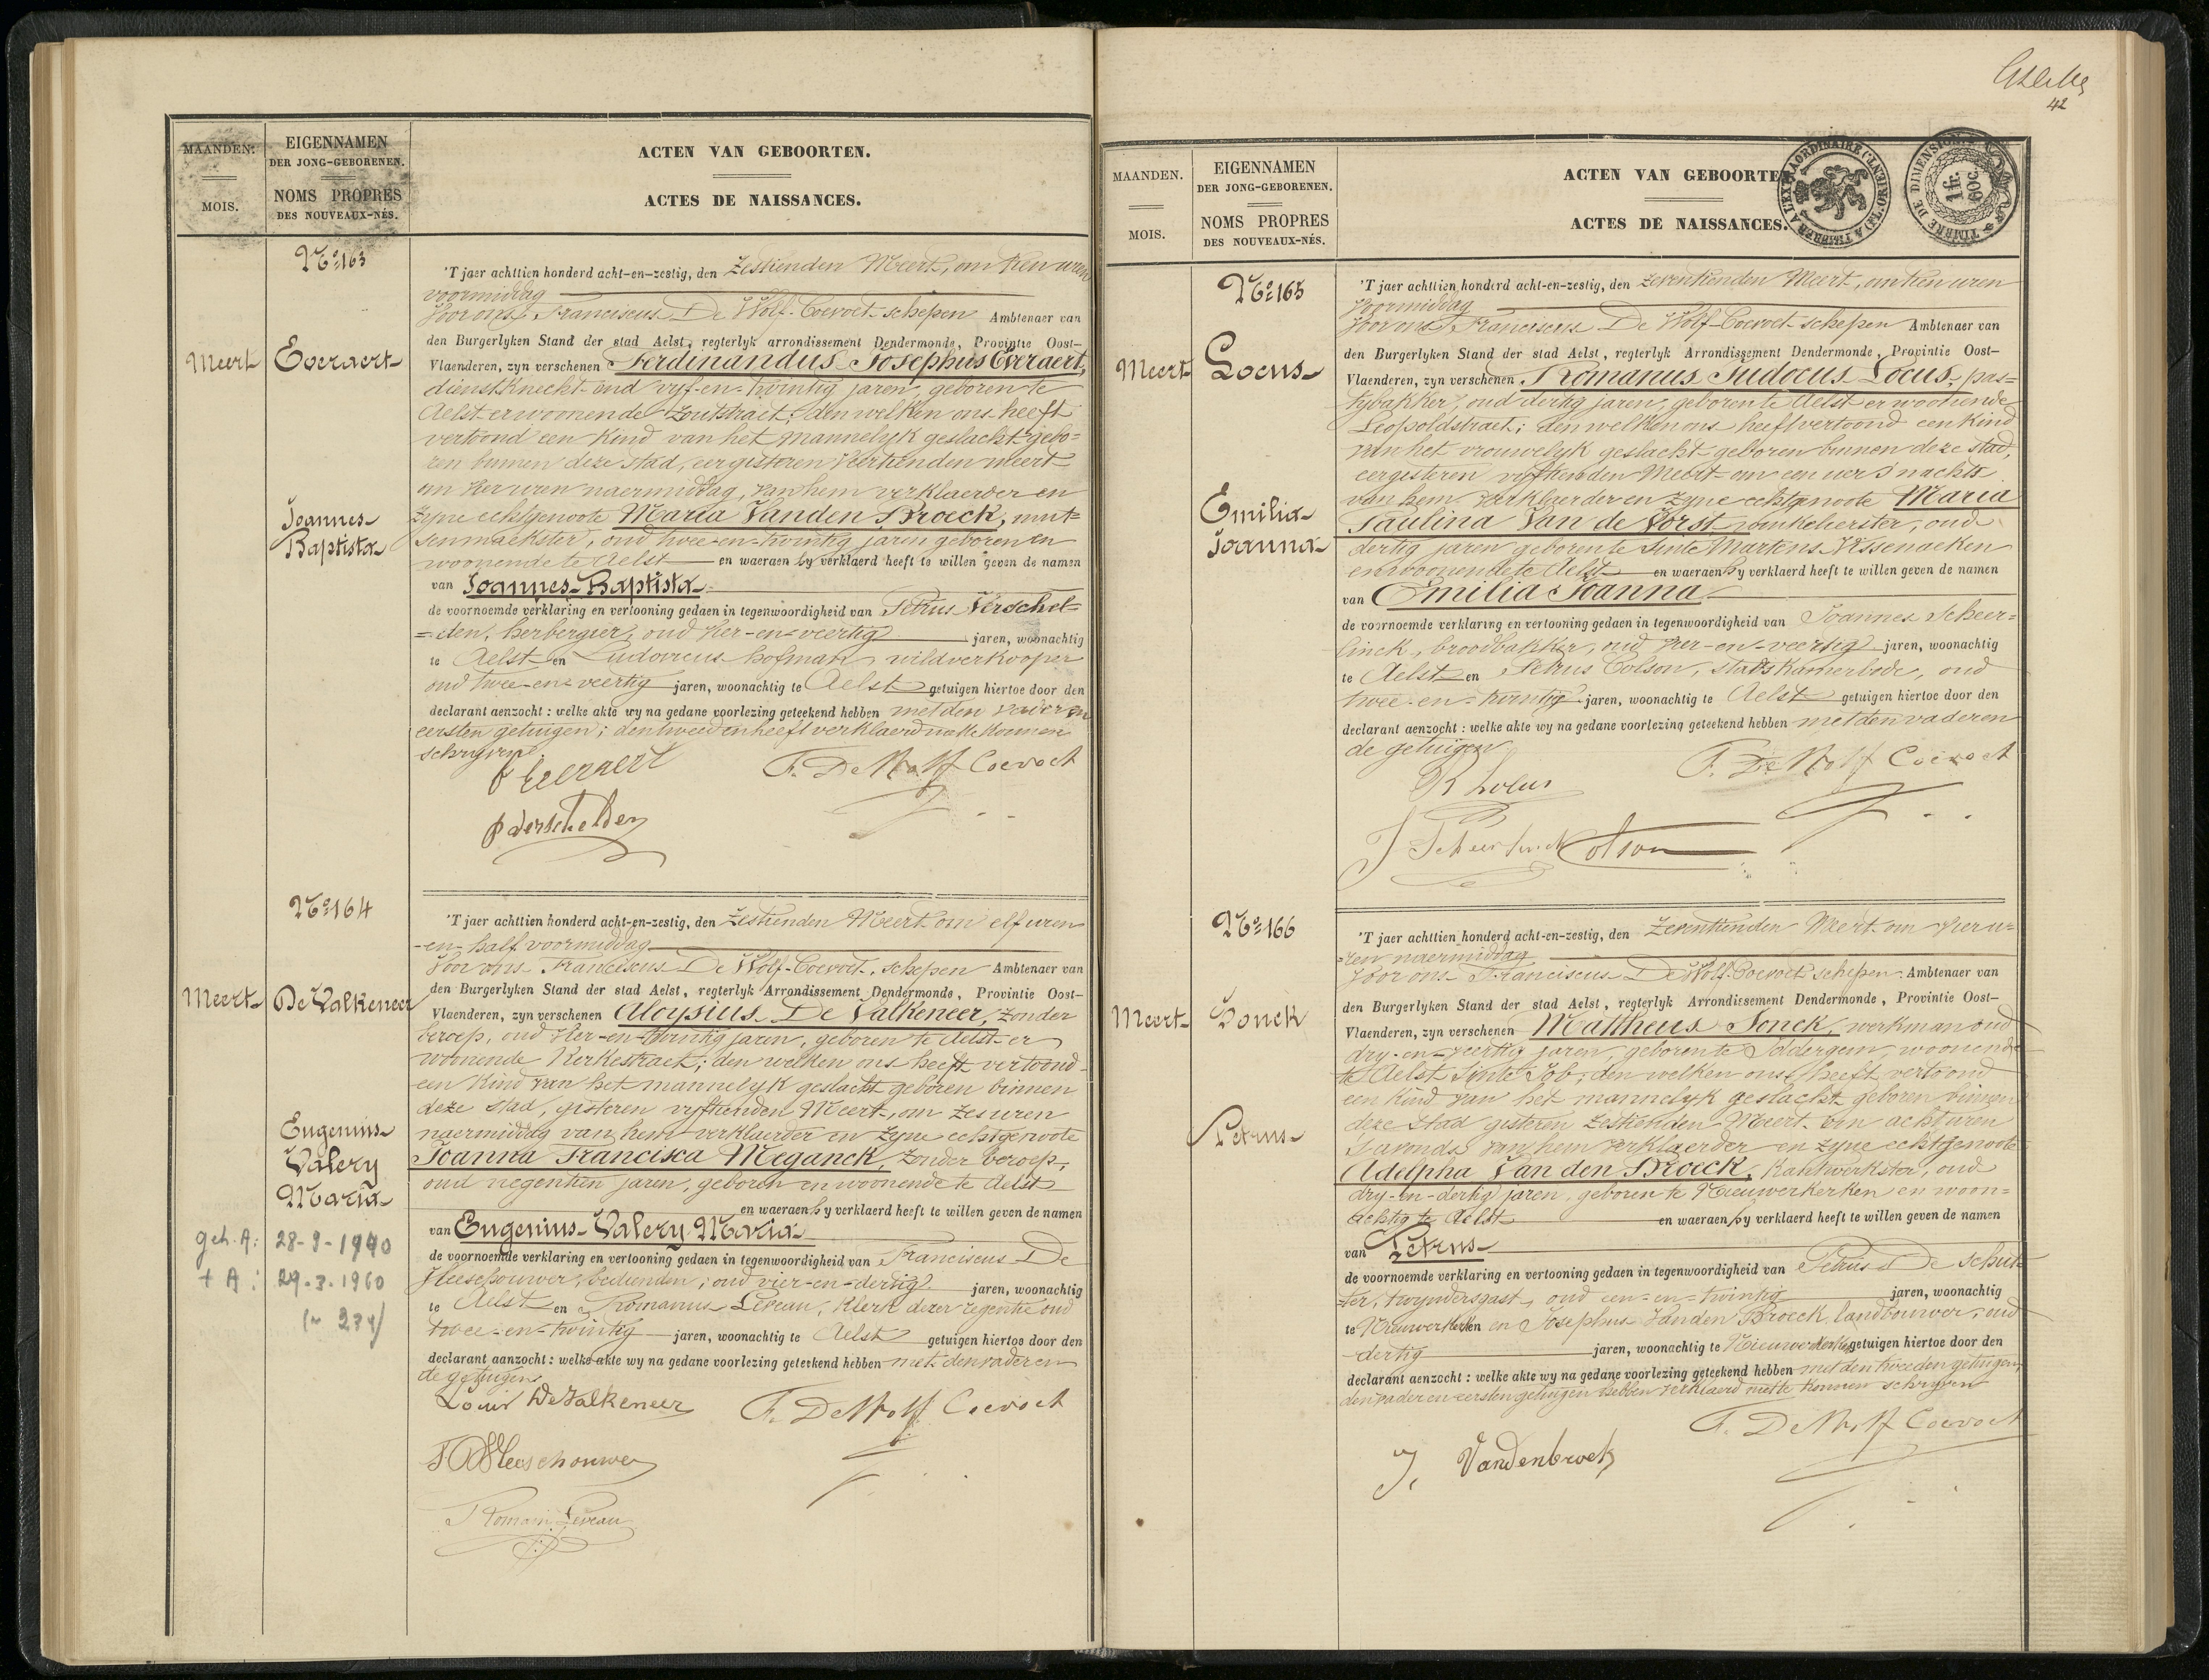 MAANDEN.
MOIS.
EIGENNAMEN
DER JONG-GEBORENEN.
NOMS PROPRES
DES NOUVEAUX-NÉS.
ACTEN VAN GEBOORTEN.
ACTES DE NAISSANCES.
No 163
Meert
Everaert
Joannes
Baptista
'T jaer achttien honderd acht-en-zestig, den zestienden Meert, om tien uren
voormiddag
Voor ons Franciscus De Wolf-Coevoet schepen Ambtenaer van
den Burgerlyken Stand der stad Aelst, regterlyk arrondissement Dendermonde, Provintie Oost-
Vlaenderen, zyn verschenen Ferdinandus Josephus Everaert,
dienstknecht oud vyf-en-twintig jaren, geboren te
Aelst er woonende Zoutstraet; den welken ons heeft
vertoond een kind van het mannelyk geslacht gebo=
ren binnen deze stad, eergisteren veertienden meert
om vier uren naermiddag, van hem verklaerder en
zyne echtgenoote Maria Vanden Broeck, mut=
senmaekster, oud twee-en-twintig jaren geboren en
woonende te Aelst en waeraen hy verklaerd heeft te willen geven de namen
van Joannes-Baptista
de voornoemde verklaring en vertooning gedaen in tegenwoordigheid van Petrus Verschel=
=den, herbergier, oud vier-en-veertig jaren, woonachtig
te Aelst en Ludovicus Hofman, wildverkooper
oud twee-en-veertig jaren, woonachtig te Aelst getuigen hiertoe door den
declarant aenzocht : welke akte wy na gedane voorlezing geteekend hebben met den vader en
eersten getuigen; den tweeden heeft verklaerd niet te konnen
schryven.
F Everaert
F. De Wolf Coevoet
P Verschelden
No 164
Meert
De Valkeneer
Eugenius
Valery
Maria
geh. A: 28-9-1940
+ A: 29.3.1960
'T jaer achttien honderd acht-en-zestig, den zestienden Meert om elf uren
-en-half voormiddag
Voor ons Franciscus De Wolf-Coevoet, schepen Ambtenaer van
den Burgerlyken Stand der stad Aelst, regterlyk Arrondissement Dendermonde, Provintie Oost-
Vlaenderen, zyn verschenen Aloysius De Valkeneer, zonder
beroep, oud vier-en-twintig jaren, geboren te Aelst er
woonende Kerkestraet; den welken ons heeft vertoond
een kind van het mannelyk geslacht geboren binnen
deze stad, gisteren vyftienden Meert, om zes uren
naermiddag van hem verklaerder en zyne echtgenoote
Joanna Francisca Meganck, zonder beroep,
oud negentien jaren, geboren en woonende te Aelst
en waeraen hy verklaerd heeft te willen geven de namen
van Eugenius-Valery Maria
de voornoemde verklaring en vertooning gedaen in tegenwoordigheid van Franciscus De
Vleeschouwer, bedienden, oud vier-en-dertig jaren, woonachtig
te Aelst en Romanus Leveau, klerk dezer regentie oud
twee-en-twintig jaren, woonachtig te Aelst getuigen hiertoe door den
declarant aanzocht : welke akte wy na gedane voorlezing geteekend hebben met den vader en
de getuigen
Louis De Valkeneer
F. De Wolf Coevoet
F De Vleeschouwer
Romain Leveau
42
MAANDEN.
MOIS.
EIGENNAMEN
DER JONG-GEBORENEN.
NOMS PROPRES
DES NOUVEAUX-NÉS.
ACTEN VAN GEBOORTE
ACTES DE NAISSANCES.
TIMBRE DE DIMENSION
1 fr.
60 c.
No 165
Meert
Locus
Emilia
Joanna
'T jaer achttien honderd acht-en-zestig, den zeventienden Meert, om tien uren
Voormiddag
Voor ons Franciscus De Wolf-Coevoet schepen Ambtenaer van
den Burgerlyken Stand der stad Aelst, regterlyk Arrondissement Dendermonde, Provintie Oost-
Vlaenderen, zyn verschenen Romanus Judocus Locus, pas=
tybakker, oud dertig jaren, geboren te Aelst er woonende
Leopoldstraet; den welken ons heeft vertoond een kind
van het vrouwelyk geslacht geboren binnen deze stad,
eergisteren vyftienden Meert om een uer s'nachts
van hem verklaerder en zyne echtgenoote Maria
Paulina Van de Vorst, oud
dertig jaren geboren te Sinte Martens Vissenaeken
en woonende te Aelst en waeraen hy verklaerd heeft te willen geven de namen
van Emilia Joanna
de voornoemde verklaring en vertooning gedaen in tegenwoordigheid van Joannes Scheer=
linck, broodbakker, oud vier-en-veertig jaren, woonachtig
te Aelst en Petrus Colson, stadskamerbode, oud
twee-en-twintig jaren, woonachtig te Aelst getuigen hiertoe door den
declarant aenzocht : welke akte wy na gedane voorlezing geteekend hebben met den vader en
de getuigen
R Locus
F. De Wolf Coevoet
J Scheerlinck Colson
No 166
Meert
Sonck
Petrus
'T jaer achttien honderd acht-en-zestig, den zeventienden Meert om vier u=
=ren naermiddag
Voor ons Franciscus De Wolf-Coevoet schepen Ambtenaer van
den Burgerlyken Stand der stad Aelst, regterlyk Arrondissement Dendermonde, Provintie Oost-
Vlaenderen, zyn verschenen Mattheus Sonck, werkman oud
dry-en-veertig jaren, geboren te Oldergem, woonende
te Aelst Sinte Job; den welken ons heeft vertoond
een kind van het mannelyk geslacht geboren binnen
deze stad gisteren zestienden Meert om acht uren
s'avonds van hem verklaerder en zyne echtgenoote
Adelpha Van den Broeck, kantwerkster, oud
dry-en-dertig jaren, geboren te Nieuwerkerken en woon=
achtig te Aelst en waeraen hy verklaerd heeft te willen geven de namen
van Petrus
de voornoemde verklaring en vertooning gedaen in tegenwoordigheid van Petrus De Schut=
=ter, twyndersgast, oud een-en-twintig jaren, woonachtig
te Nieuwerkerken en Josephus Vanden Broeck landbouwer, oud
dertig jaren, woonachtig te Nieuwerkerken getuigen hiertoe door den
declarant aenzocht : welke akte wy na gedane voorlezing geteekend hebben met den tweeden getuigen,
den vader en eersten getuigen hebben verklaerd niet te konnen schryven
F. De Wolf Coevoet
J. Vandenbroek